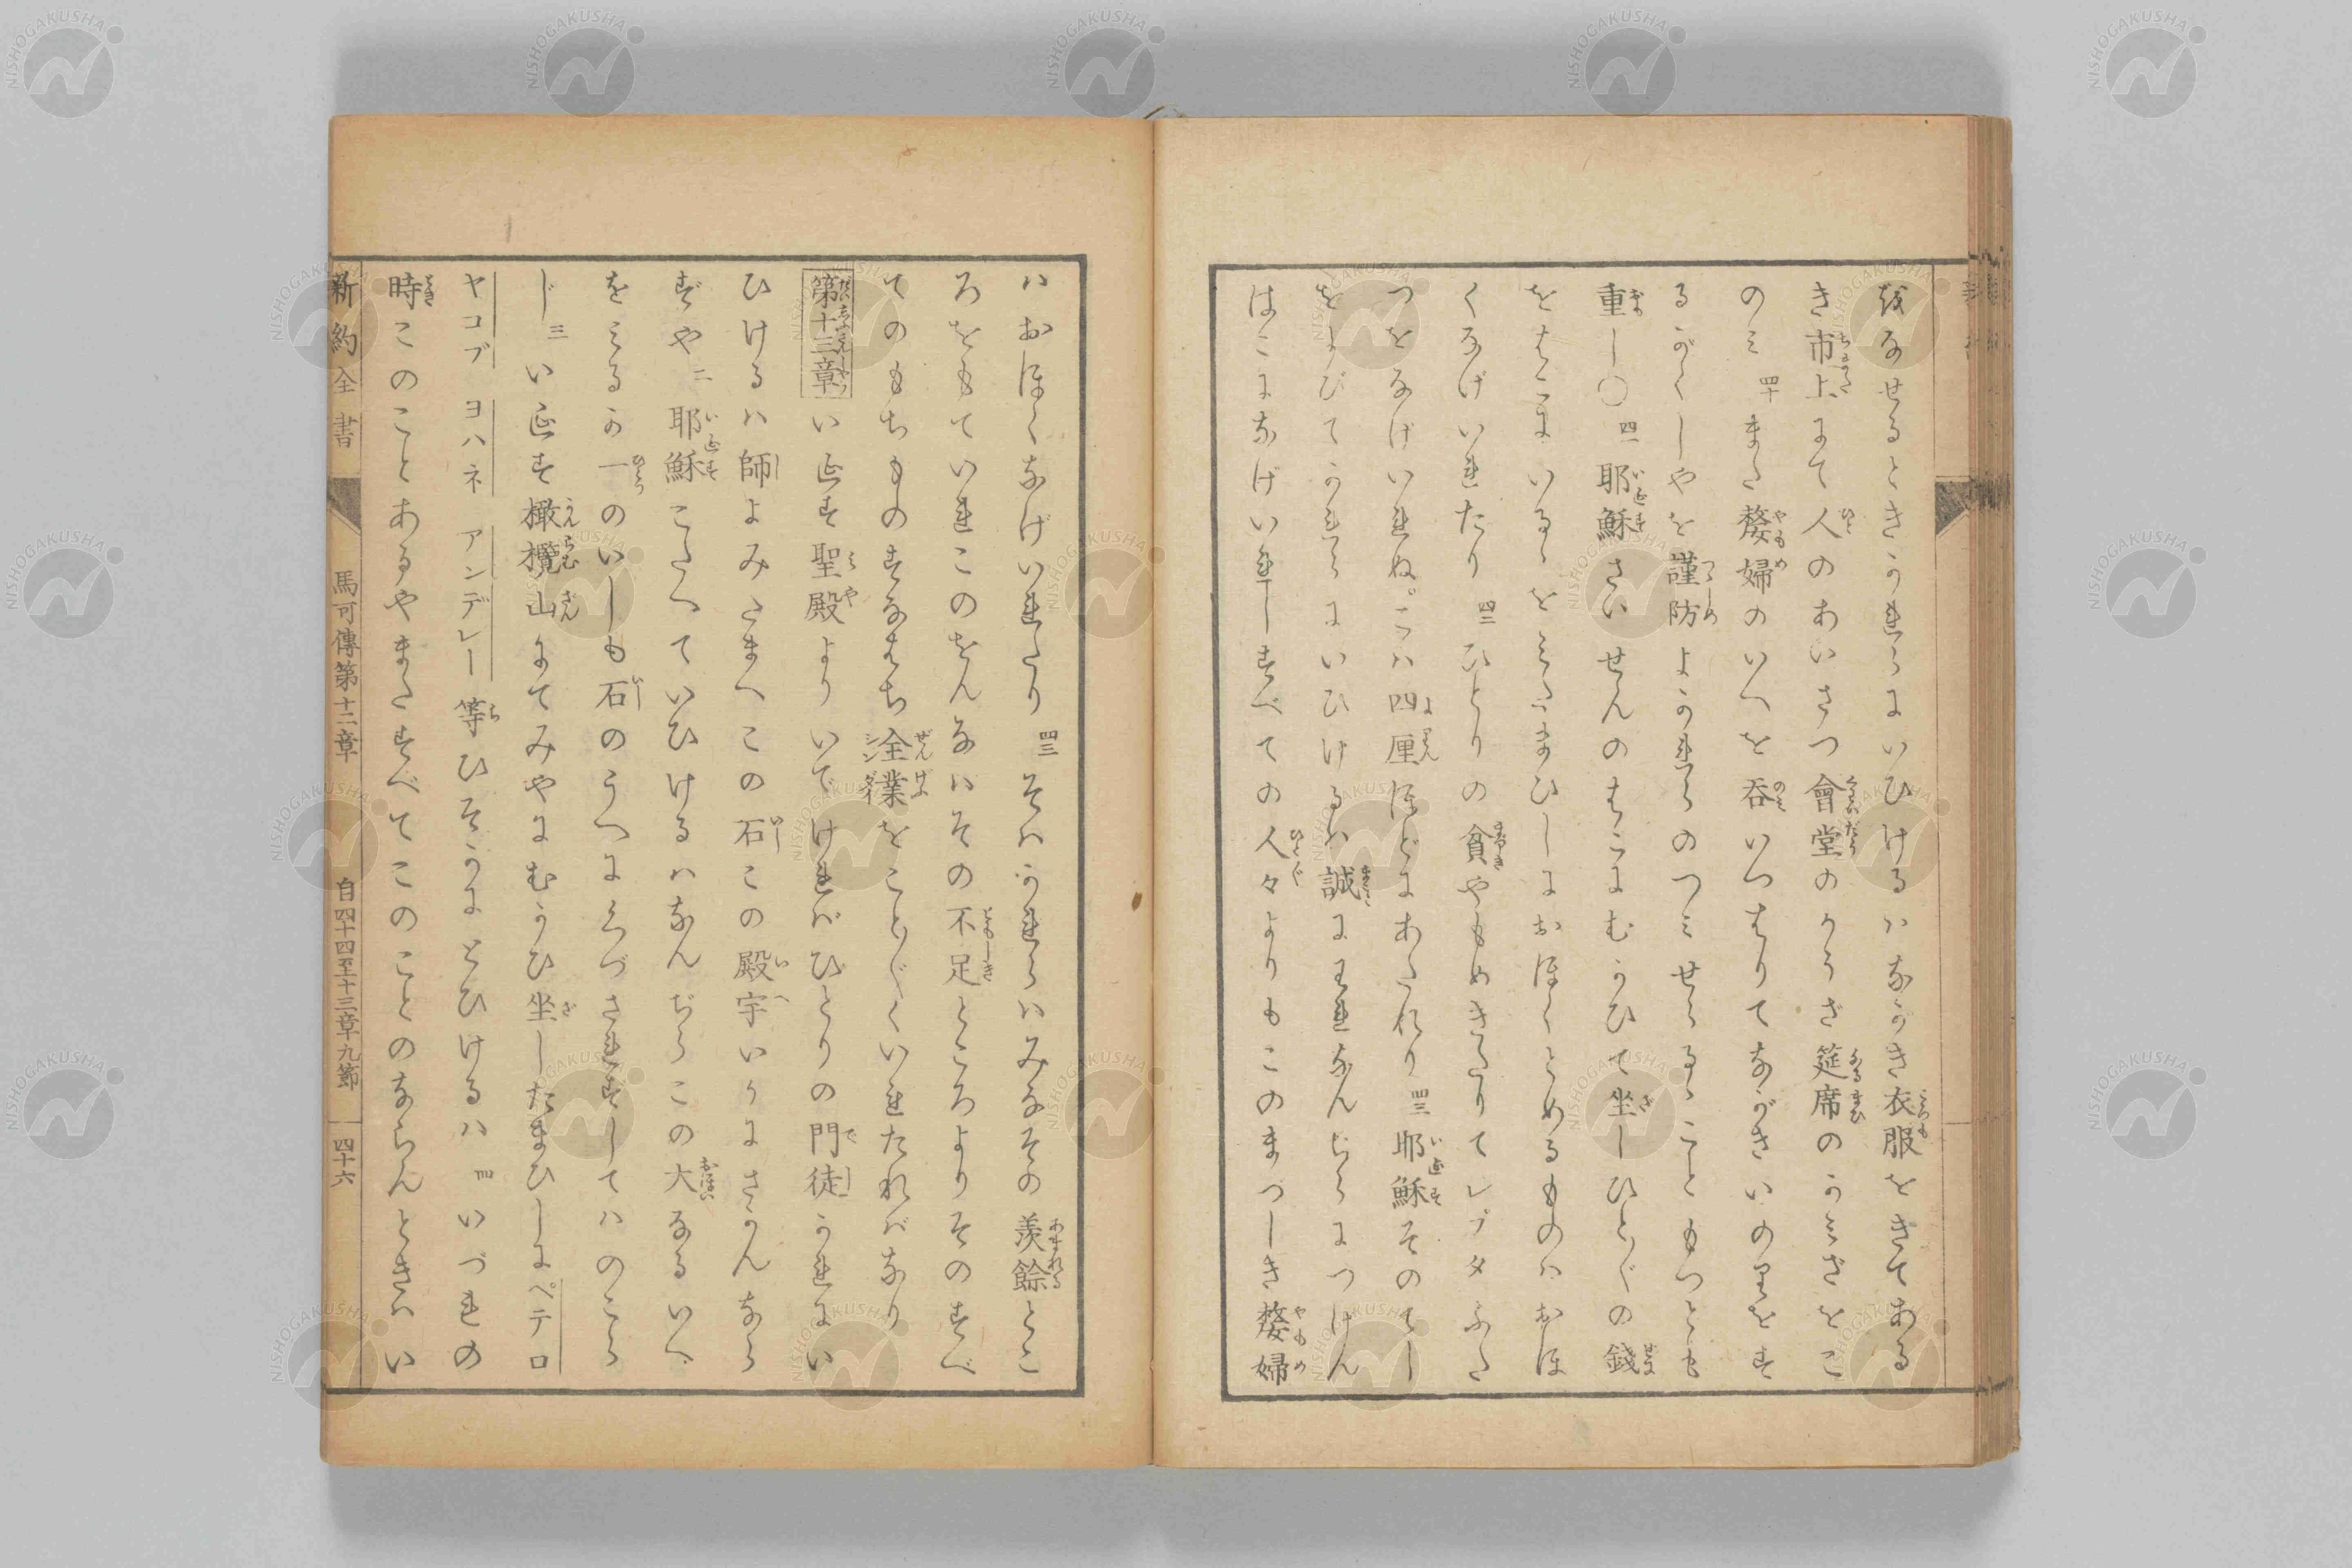 をなせるときかれらにいひけるハながき衣服をきてある
き市上にて人のあいさつ會堂のかうざ筵席のかみざをこ
のミ四十また嫠婦のいへを呑いつはりてながきいのりをす
るがくしやを謹防よかれらのつミせらるゝこともつとも
重し〇四一耶穌さいせんのはこにむかひて坐しひと〴〵の錢
をはこにいるゝをミたまひしにおほくとめるものハおほ
くなげいれたり四二ひとりの貧やもめきたりてレプタふた
つをなげいれぬ。こハ四厘ほどにあたれり四三耶穌そのでし
をよびてかれらにいひけるハ誠にわれなんぢらにつげん
はこになげいれしすべての人々よりもこのまづしき嫠婦
ハおほくなげいれたり四三そハかれらハみなその羨餘とこ
ろをもていれこのをんなハその不足ところよりそのすべ
てのもちものすなはち全業をこと〴〵くいれたれバなり
第十三章いエす聖殿よりいでけれバひとりの門徒かれにい
ひけるハ師よみたまへこの石この殿宇いかにさかんなら
ずや二耶穌こたへていひけるハなんぢらこの大なるいへ
をミるか一のいしも石のうへにくづされずしてハのこら
じ三いエす橄欖山にてみやにむかひ坐したまひしにペテロ
ヤコブ ヨハネ アンデレー等ひそかにとひけるハ四いづれの
時このことあるやまたすべてこのことのならんときハい
新約全書 馬可傳第十二章 自四十四至十三章九節 四十六
NISHOGAKUSHA